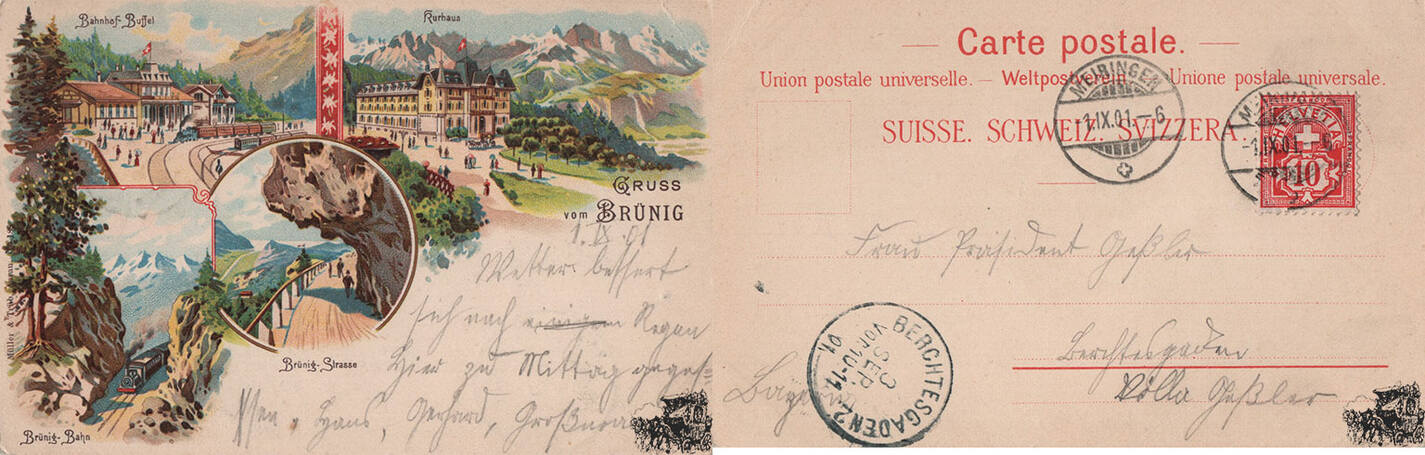 Bahnhof-Buffet
Kurhaus
GRUSS
vom BRÜNIG
1. IX 01
Wetter bessert
sich nach einigem Regen
Hier zu Mittag geges=
sen, Hans, Gerhard,
Brünig-Strasse
Brünig-Bahn
Müller & Trüb, Aarau
Carte postale.
Union postale universelle. — Weltpostverein. — Unione postale universale.
SUISSE. SCHWEIZ. SVIZZERA
MEIRINGEN
-1.IX.01.-6
HELVETIA
10
-1.IX.01.-6
Frau Präsident Geßler
Berchtesgaden
Villa Geßler
Bayern
BERCHTESGADEN 2
3
SEP
VOR 10-11
01.